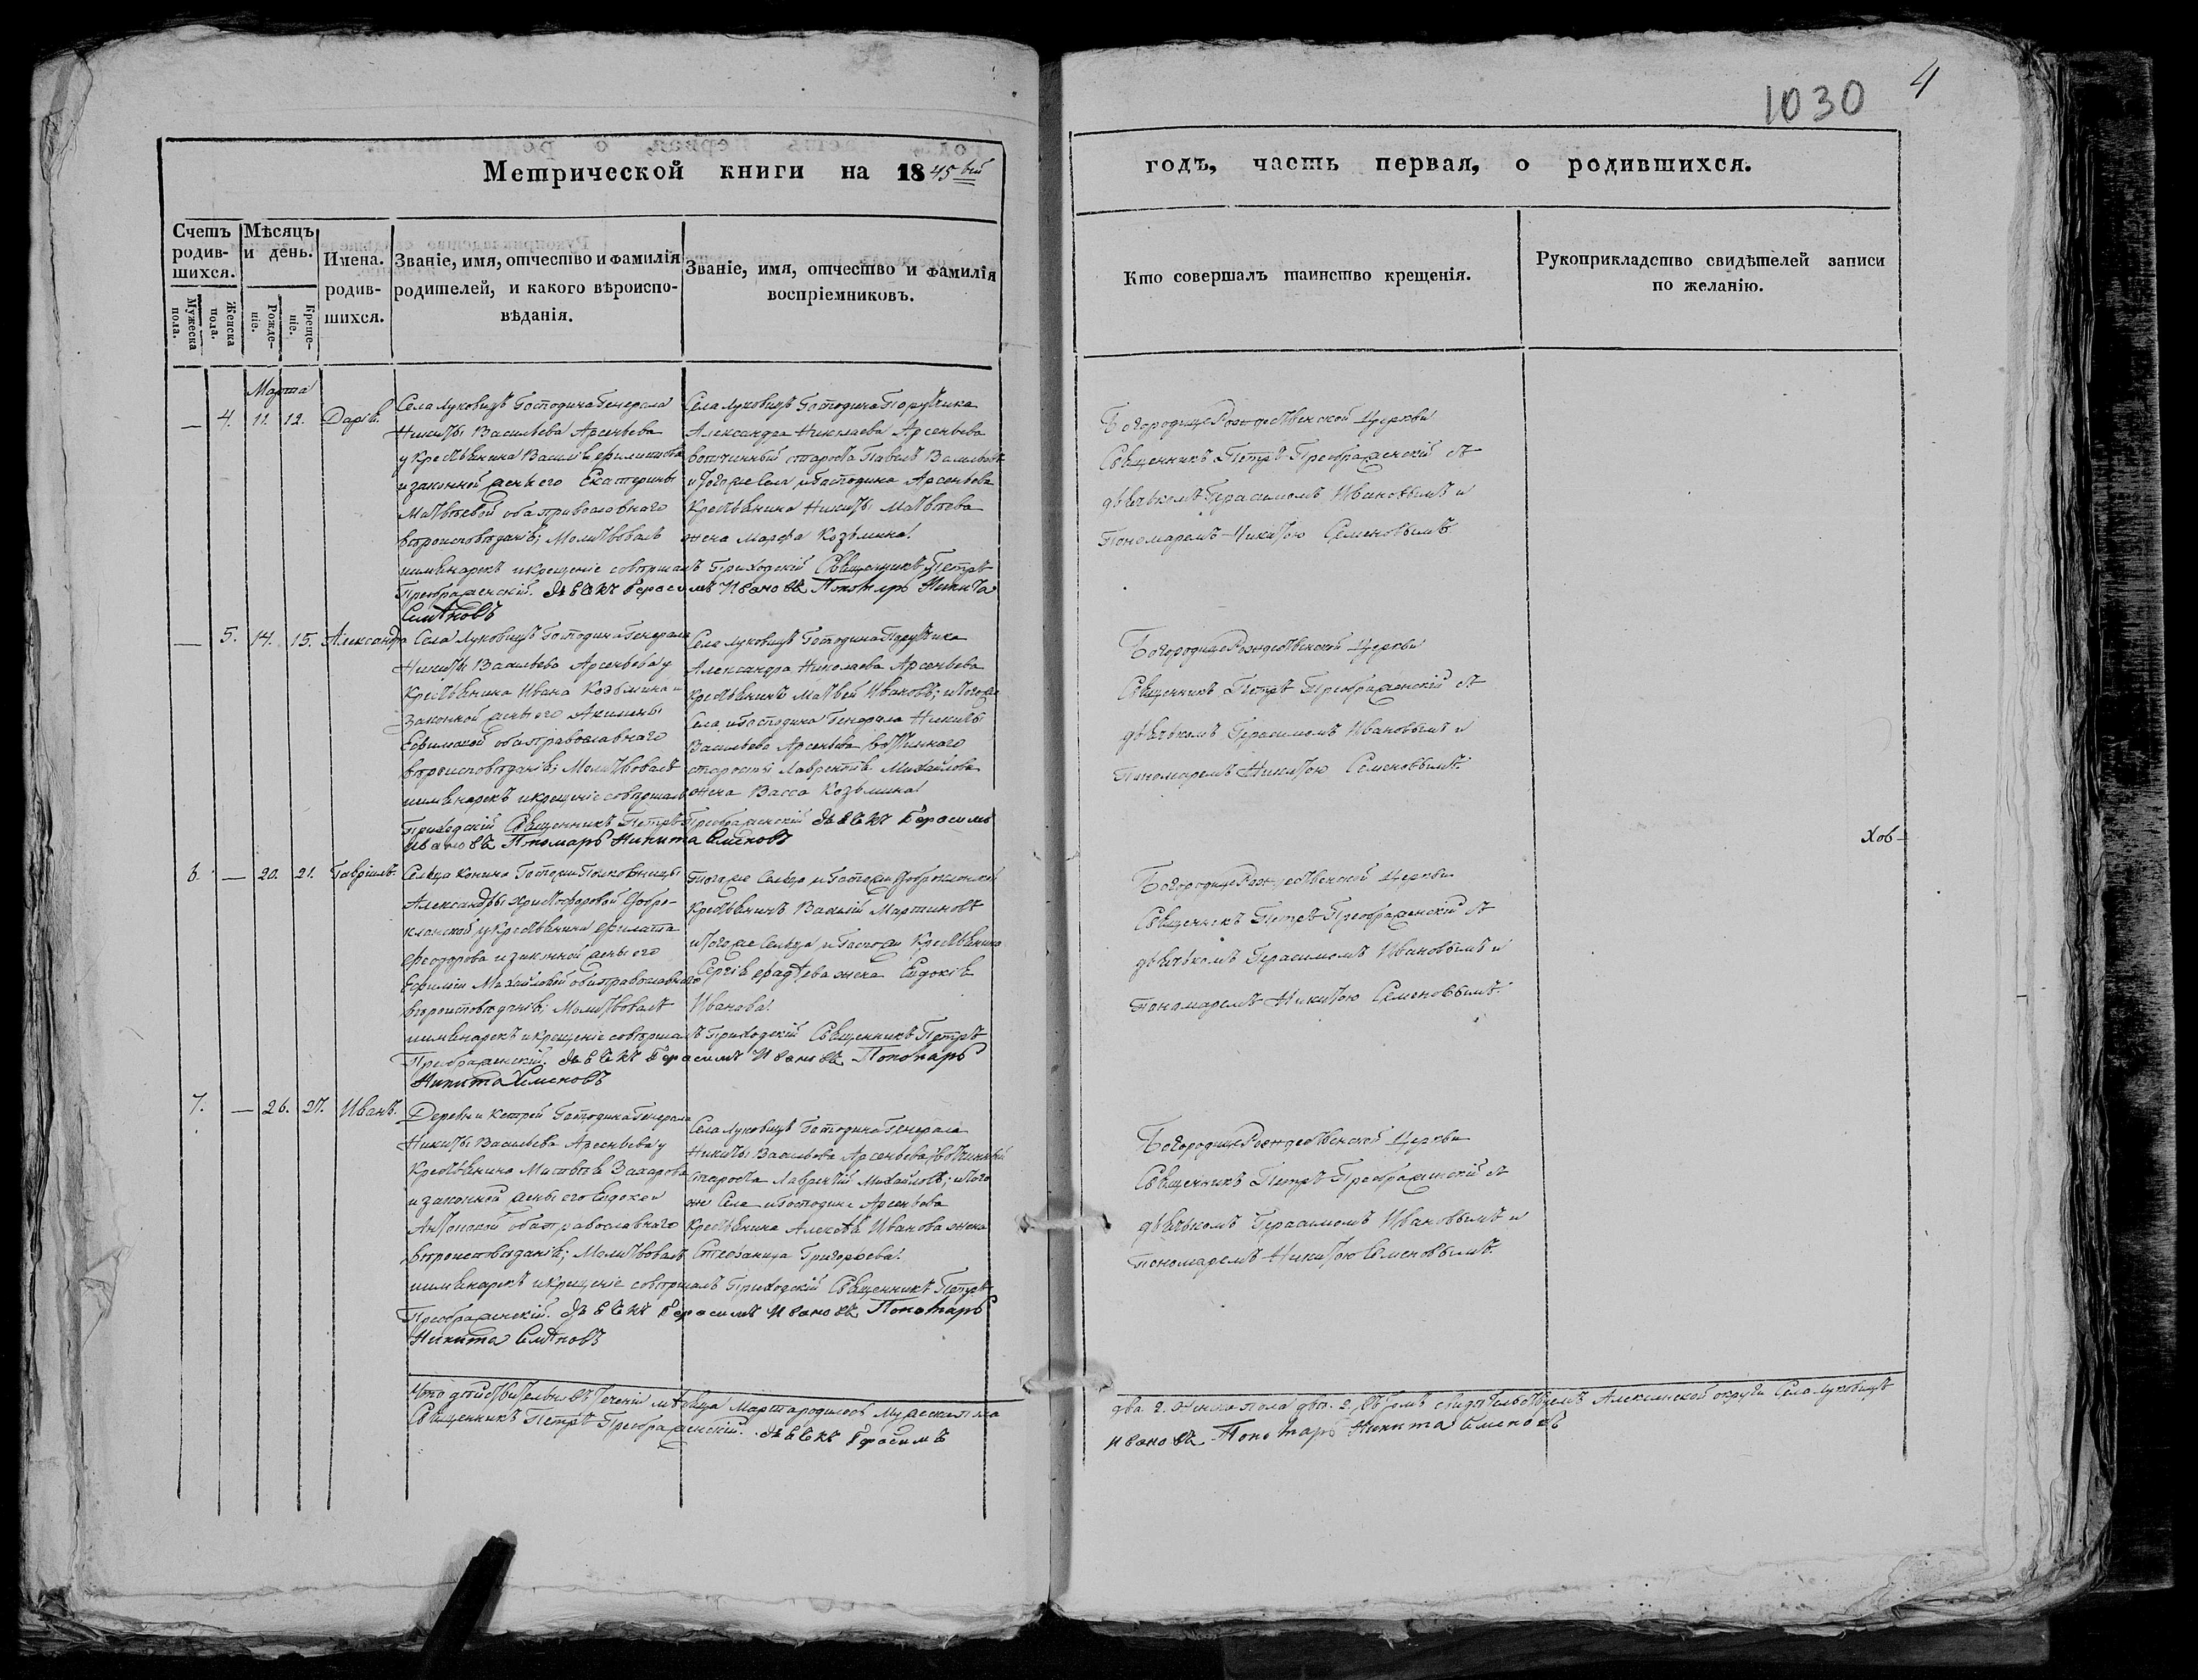 1030 4
Метрической книги на 1845вый
годъ, часть первая, о родившихся.
Счетъ родив-шихся.
Мужеска пола.
Женска пола.
Мѣсяцъ и день.
Рожде-ніе.
Креще-ніе.
Имена. родив-шихся.
Званіе, имя, отчество и фамилія
родителей, и какого вѣроиспо-
вѣданія.
Званіе, имя, отчество и фамилія
воспріемниковъ.
Кто совершалъ таинство крещенія.
Рукоприкладство свидѣтелей записи
по желанію.
Марта
— 4. 11. 12. Дарія.
Села Луковицъ Господина Генерала
Никиты Васильева Арсеньева
у Крестьянина Василія Филиппова
и законной жены его Екатерины
Матвѣевой оба православнаго
вѣроисповѣданія; Молитвовалъ
имя нарекъ и крещеніе совершалъ Приходскій Священникъ Петръ
Преображенскій. дьячкъ Герасимъ Ивановъ Пономарь Никита
Семёновъ
Села Луковицъ Господина Поручика
Александра Николаева Арсеньева
вотчинный староста Павелъ Васильевъ
и того же Села и Господина Арсеньева
Крестьянина Никиты Матвѣева
жена Марфа Козьмина.
Богородице Рождественской Церкви
Священникъ Петръ Преображенскій съ
дьячкомъ Герасимомъ Ивановымъ и
Пономаремъ Никитою Семеновымъ.
— 5. 14. 15. Александра
Села Луковицъ Господина Генерала
Никиты Васильева Арсеньева у
Крестьянина Ивана Козьмина и
законной жены его Акилины
Ефимовой оба православнаго
вѣроисповѣданія; Молитвовалъ
имя нарекъ и крещеніе совершалъ
Приходскій Священникъ Петръ Преображенскій дьячкъ Герасимъ
Ивановъ Пономарь Никита Семеновъ
Села Луковицъ Господина Поручика
Александра Николаева Арсеньева
Крестьянинъ Матвей Ивановъ; и того же
Села и Господина Генерала Никиты
Васильева Арсеньева вотчиннаго
старосты Лаврентія Михайлова
жена Васса Козьмина.
Богородице Рождественской Церкви
Священникъ Петръ Преображенскій съ
дьячкомъ Герасимомъ Ивановымъ и
Пономаремъ Никитою Семеновымъ.
6. — 20. 21. Гавріилъ.
Сельца Конина Госпожи Полковницы
Александры Христофоровой Добро-
клонской у Крестьянина Филата
Феодорова и законной жены его
Ефиміи Михайловой оба православнаго
вѣроисповѣданія; Молитвовалъ
имя нарекъ и крещеніе совершалъ Приходскій Священникъ Петръ
Преображенскій. дьячкъ Герасимъ Ивановъ Пономарь
Никита Семеновъ
Того же Сельца и Госпожи Доброклонской
Крестьянинъ Василій Мартиновъ
и того же Сельца и Госпожи Крестьянина
Сергія Фадѣева жена Евдокія
Иванова.
Богородице Рождественской Церкви
Священникъ Петръ Преображенскій съ
дьячкомъ Герасимомъ Ивановымъ и
Пономаремъ Никитою Семеновымъ.
7. — 26. 27. Иванъ.
Деревни Кетрей Господина Генерала
Никиты Васильева Арсеньева у
Крестьянина Матвѣя Захарова
и законной жены его Евдокеи
Антоновой оба православнаго
вѣроисповѣданія; Молитвовалъ
имя нарекъ и крещеніе совершалъ Приходскій Священникъ Петръ
Преображенскій. дьячкъ Герасимъ Ивановъ Пономарь
Никита Семёновъ
Села Луковицъ Господина Генерала
Никиты Васильева Арсеньева вотчинный
Староста Лаврентій Михайловъ; и того
же Села и Господина Арсеньева
Крестьянина Алексѣя Иванова жена
Степанида Григорьева.
Богородице Рождественской Церкви
Священникъ Петръ Преображенскій съ
дьячкомъ Герасимомъ Ивановымъ и
Пономаремъ Никитою Семеновымъ.
Хов-
Что дѣйствительно въ теченіи мѣсяца Марта родилось Мужеска пола
два 2. Женска пола двѣ. 2. въ томъ свидѣтельствуемъ Алексинской округи Села Луковицъ
Священникъ Петръ Преображенскій. дьячкъ Герасимъ
Ивановъ Пономарь Никита Семеновъ